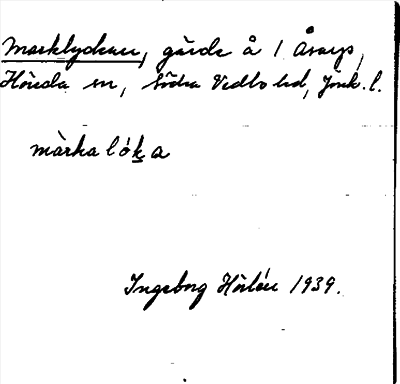 Marklyckan, gärde å 1 Åsarp,
Höreda sn, Södra Vedbo hd, Jönk. l.
màrkalók̲a
Ingeborg Hörlén 1939.